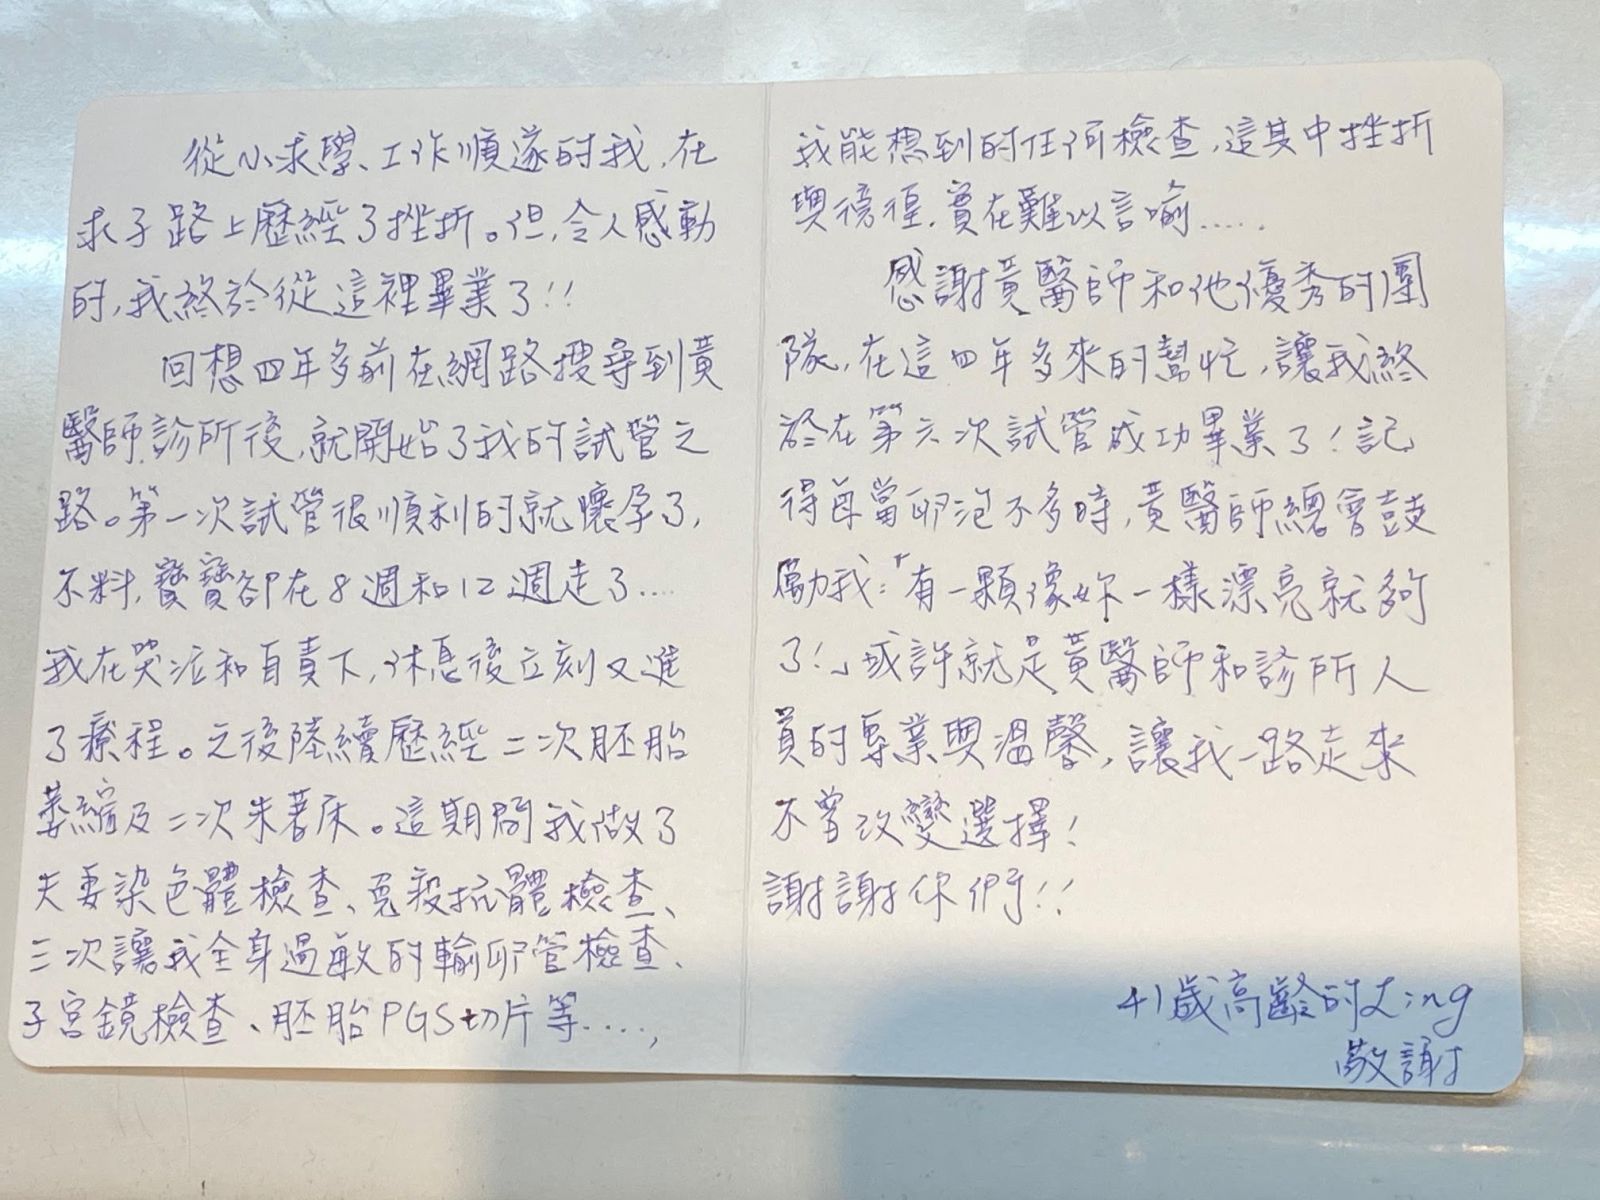 從小求學、工作順遂的我,在
求子路上歷經了挫折。但,令人感動
的,我終於從這裡畢業了!!
回想四年多前在網路搜尋到黃
醫師診所後,就開始了我的試管之
路。第一次試管很順利的就懷孕了,
不料,寶寶卻在8週和12週走了....
我在哭泣和自責下,休息後立刻又進
了療程。之後陸續歷經二次胚胎
萎縮及二次未著床。這期間我做了
夫妻染色體檢查、免疫抗體檢查、
三次讓我全身過敏的輸卵管檢查、
子宮鏡檢查、胚胎PGS切片等....,
我能想到的任何檢查,這其中挫折
與徬徨,實在難以言喻.....
感謝黃醫師和他優秀的團
隊,在這四年多來的幫忙,讓我終
於在第六次試管成功畢業了!記
得每當卵泡不多時,黃醫師總會鼓
勵我:「有一顆像妳一樣漂亮就夠
了!」或許就是黃醫師和診所人
員的專業與溫馨,讓我一路走來
不曾改變選擇!
謝謝你們!!
41歲高齡的Ling
敬謝